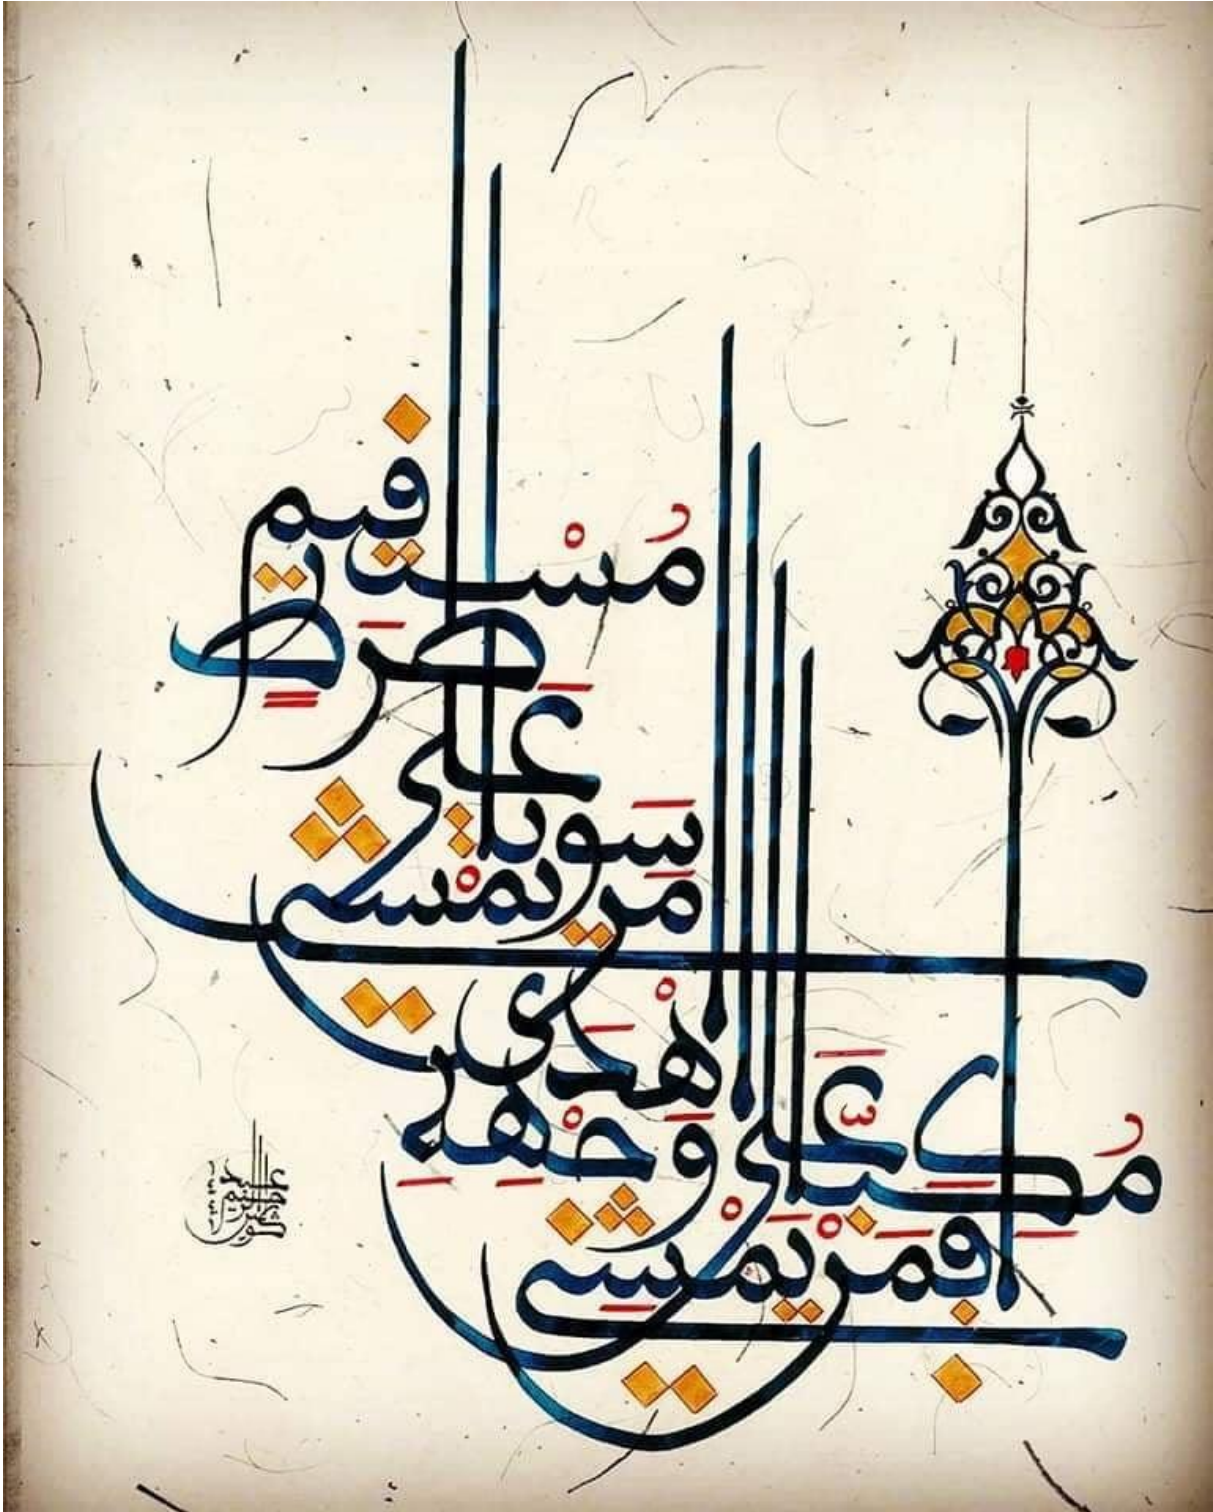 افَمَنْ يَمْشِي
مُكِبّاً عَلى وَجْهِهِ
اَهْدَى
اَمَن يَمْشي
سَويا
عَلى
صرَطٍ
مُسْتقيم